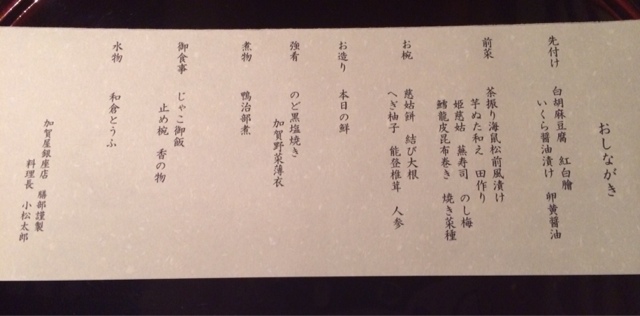 おしながき
先付け 白胡麻豆腐 紅白膾
いくら醤油漬け 卵黄醤油
前菜 茶振り海鼠松前風漬け
芋ぬた和え 田作り
姫慈姑 蕪寿司 のし梅
鱈龍皮昆布巻き 焼き菜種
お椀 慈姑餅 結び大根
へぎ柚子 能登椎茸 人参
お造り 本日の鮮
強肴 のど黒塩焼き
加賀野菜薄衣
煮物 鴨治部煮
御食事 じゃこ御飯
止め椀 香の物
水物 和倉とうふ
加賀屋銀座店 膳部謹製
料理長 小松太郎